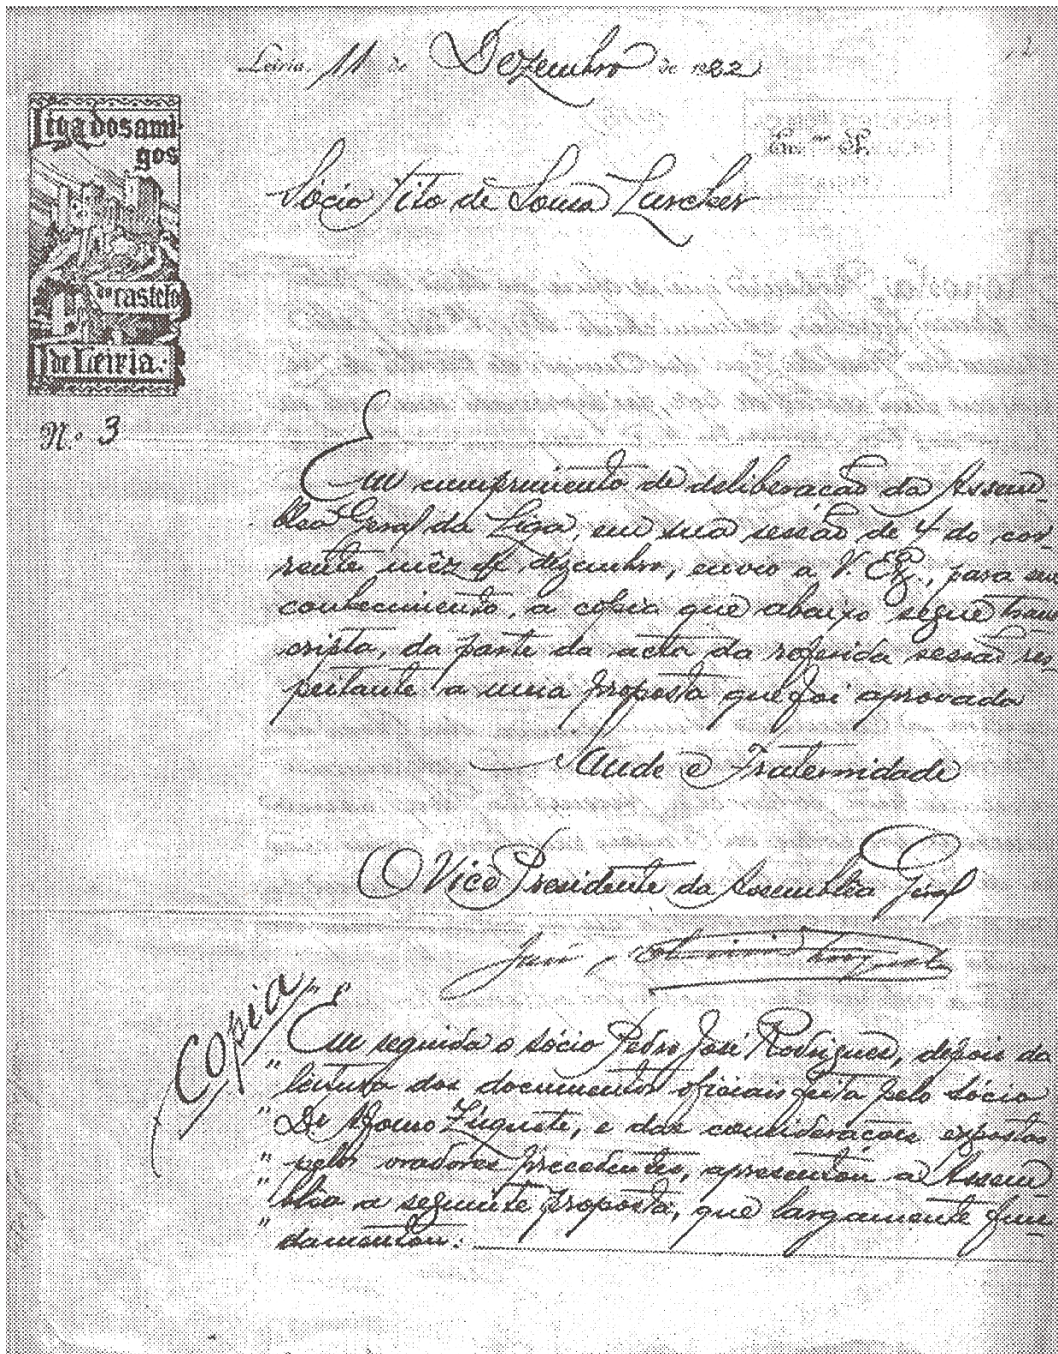 Leiria, 11 de Dezembro de 1922
Liga dos ami-
gos
do castelo
de Leiria.
Exmo Sr.
Sócio Tito de Sousa Larcher
N.o 3
Em cumprimento de deliberação da Assem-
blea Geral da Liga, em sua sessão de 4 do cor-
rente mêz de dezembro, envio a V. Exa., para seu
conhecimento, a copia que abaixo segue trans
cripta, da parte da acta da referida sessão res
peitante a uma proposta que foi aprovada
Saude e Fraternidade
O Vice Presidente da Assemblea Geral
Copia
Em seguida o sócio Pedro José Rodrigues, depois da
" leitura dos documentos oficiais feita pelo sócio
" Dr Afonso Zúquete, e das considerações expostas
" pelos oradores precedentes, apresentou a Assem
" blea a seguinte proposta, que largamente fun-
" damentou: